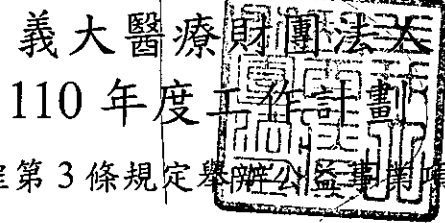 義大醫療財團法人
110 年度工作計劃
程第 3 條規定舉辦公益事業